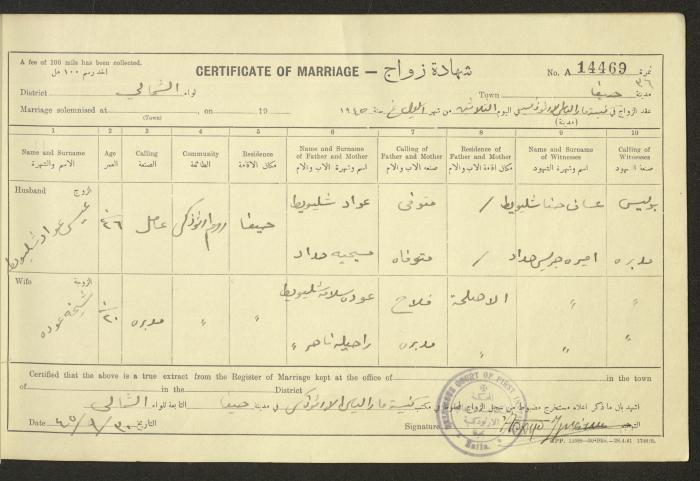 A fee of 100 mils has been collected.
اخذ رسم ١٠٠ مل
CERTIFICATE OF MARRIAGE — شهادة زواج
No. A 14469 نمرة
٣٦
District لواء الشمالي
Town حيفا مدينة
Marriage solemnised at , on 19
(Town)
عقد الزواج في كنيسة مار الياس اليوم الثلاثين من شهر سنة ١٩٤٥
(مدينة)
1 2 3 4 5 6 7 8 9 10
Name and Surname الاسم والشهرة
Age العمر
Calling الصنعة
Community الطائفة
Residence مكان الاقامة
Name and Surname of Father and Mother اسم وشهرة الاب والام
Calling of Father and Mother صنعة الاب والام
Residence of Father and Mother مكان اقامة الاب والام
Name and Surname of Witnesses اسم وشهرة الشهود
Calling of Witnesses صنعة الشهود
Husband الزوج
عيسى عواد شليويط
٢٦
عامل
روم ارثوذكس
حيفا
عواد شليويط
متوفي
/
حنا شليويط
بوليس
مسيحيه حداد
متوفاه
/
اميره جريس حداد
مدبره
Wife الزوجة
شيخه عوده
٢٠
مدبره
"
"
عوده سلامه شليويط
فلاح
"
"
راحيله ناصر
مدبره
"
"
"
Certified that the above is a true extract from the Register of Marriage kept at the office of in the town
of in the District
اشهد بان ما ذكر اعلاه مستخرج مضبوط من سجل الزواج المحفوظ في مكتب كنيسة مار الياس الارثوذكس في مدينة حيفا التابعة للواء الشمالي
Date ٤٥/٩/٣٠ التاريخ
Signature
COURT OF FIRST
Haifa.